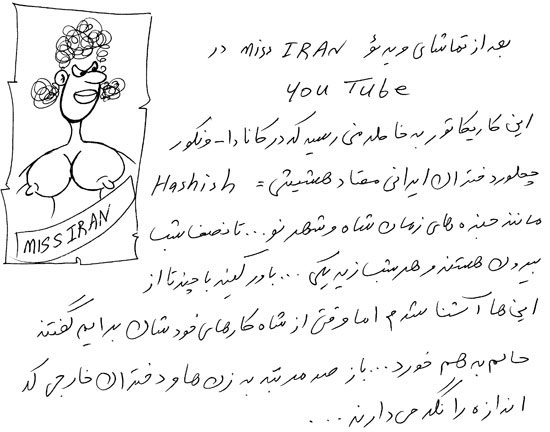 بعد از تماشای ویدئو miss IRAN در
you Tube
این کاریکاتور به خاطر منی رسید که در کانادا - ونکور
چطور دختران ایرانی معتاد حشیشی = Hashish
مانند جنده های زمان شاه و شهر نو... تا نصف شب
بیرون هستند و هر شب زیر یکی... باور کنید با چند تا از
این ها آشنا شدم اما وقتی از شاه کارهای خودشان برایم گفتند
حالم به هم خورد... باز صد مرتبه به زن ها و دختران خارجی که
اندازه را نگه می دارند...
MISS IRAN